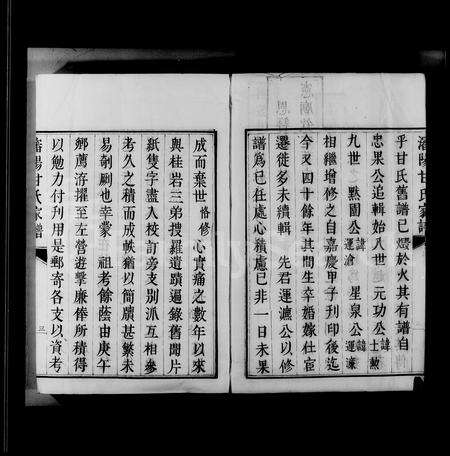 瀋陽甘氏家譜
乎甘氏舊譜已燬於火其有譜自
忠果公追輯始八世元功公諱士㷿
九世默園公諱運滄星泉公諱運濂
相繼增修之自嘉慶甲子刊印後迄
今又四十餘年其間生卒婚嫁仕宦
遷徙多未續輯先君運漉公以修
譜爲已任處心積慮已非一日未果
成而棄世恪修心實痛之數年以來
與桂岩三弟搜羅遺蹟遍錄舊聞片
紙隻字盡入校訂旁支別派互相參
考久之積而成帙猶以簡牘甚繁未
易剞劂也幸蒙祖考餘蔭由庚午
鄉薦洊擢至左營遊擊廉俸所積得
以勉力付刊用是郵寄各支以資考
瀋陽甘氏家譜
三